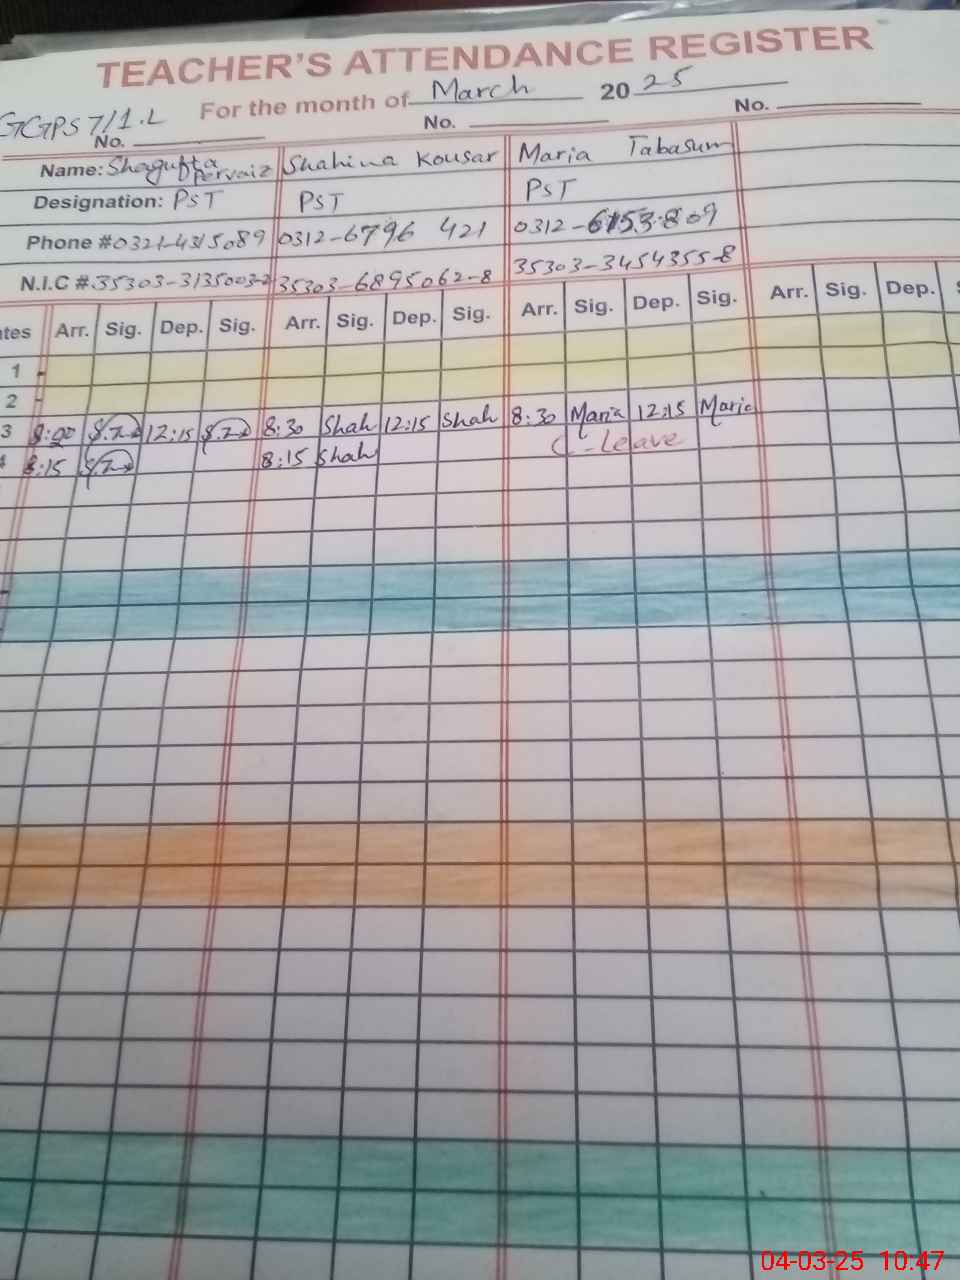 TEACHER'S ATTENDANCE REGISTER
For the month of March 2025
GGPS 7/1.L
No. No. No.
Name: Shagufta Pervaiz Shahina Kousar Maria Tabasum
Designation: PST PST PST
Phone # 0321-4315089 0312-6796 421 0312-6153809
N.I.C #. 35303-3135003-2 35303-6895062-8 35303-3454355-8
tes Arr. Sig. Dep. Sig. Arr. Sig. Dep. Sig. Arr. Sig. Dep. Sig. Arr. Sig. Dep. S
1
2
3 8:00 12:15 8:30 Shah 12:15 Shah 8:30 Maria 12:15 Maria
4 8:15 8:15 Shah C-leave
04-03-25 10:47